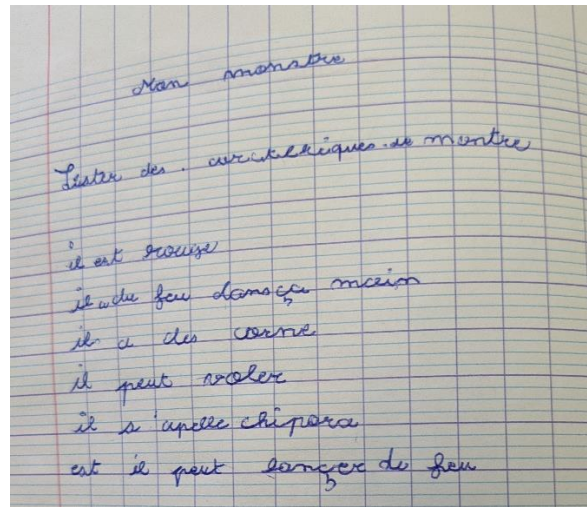 Mon monstre
Lister des . carcktériques de montre
il est rouige
il a du feu dans ça main
il a des corne
il peut voler
il s'apelle chipora
est il peut lançer du feu